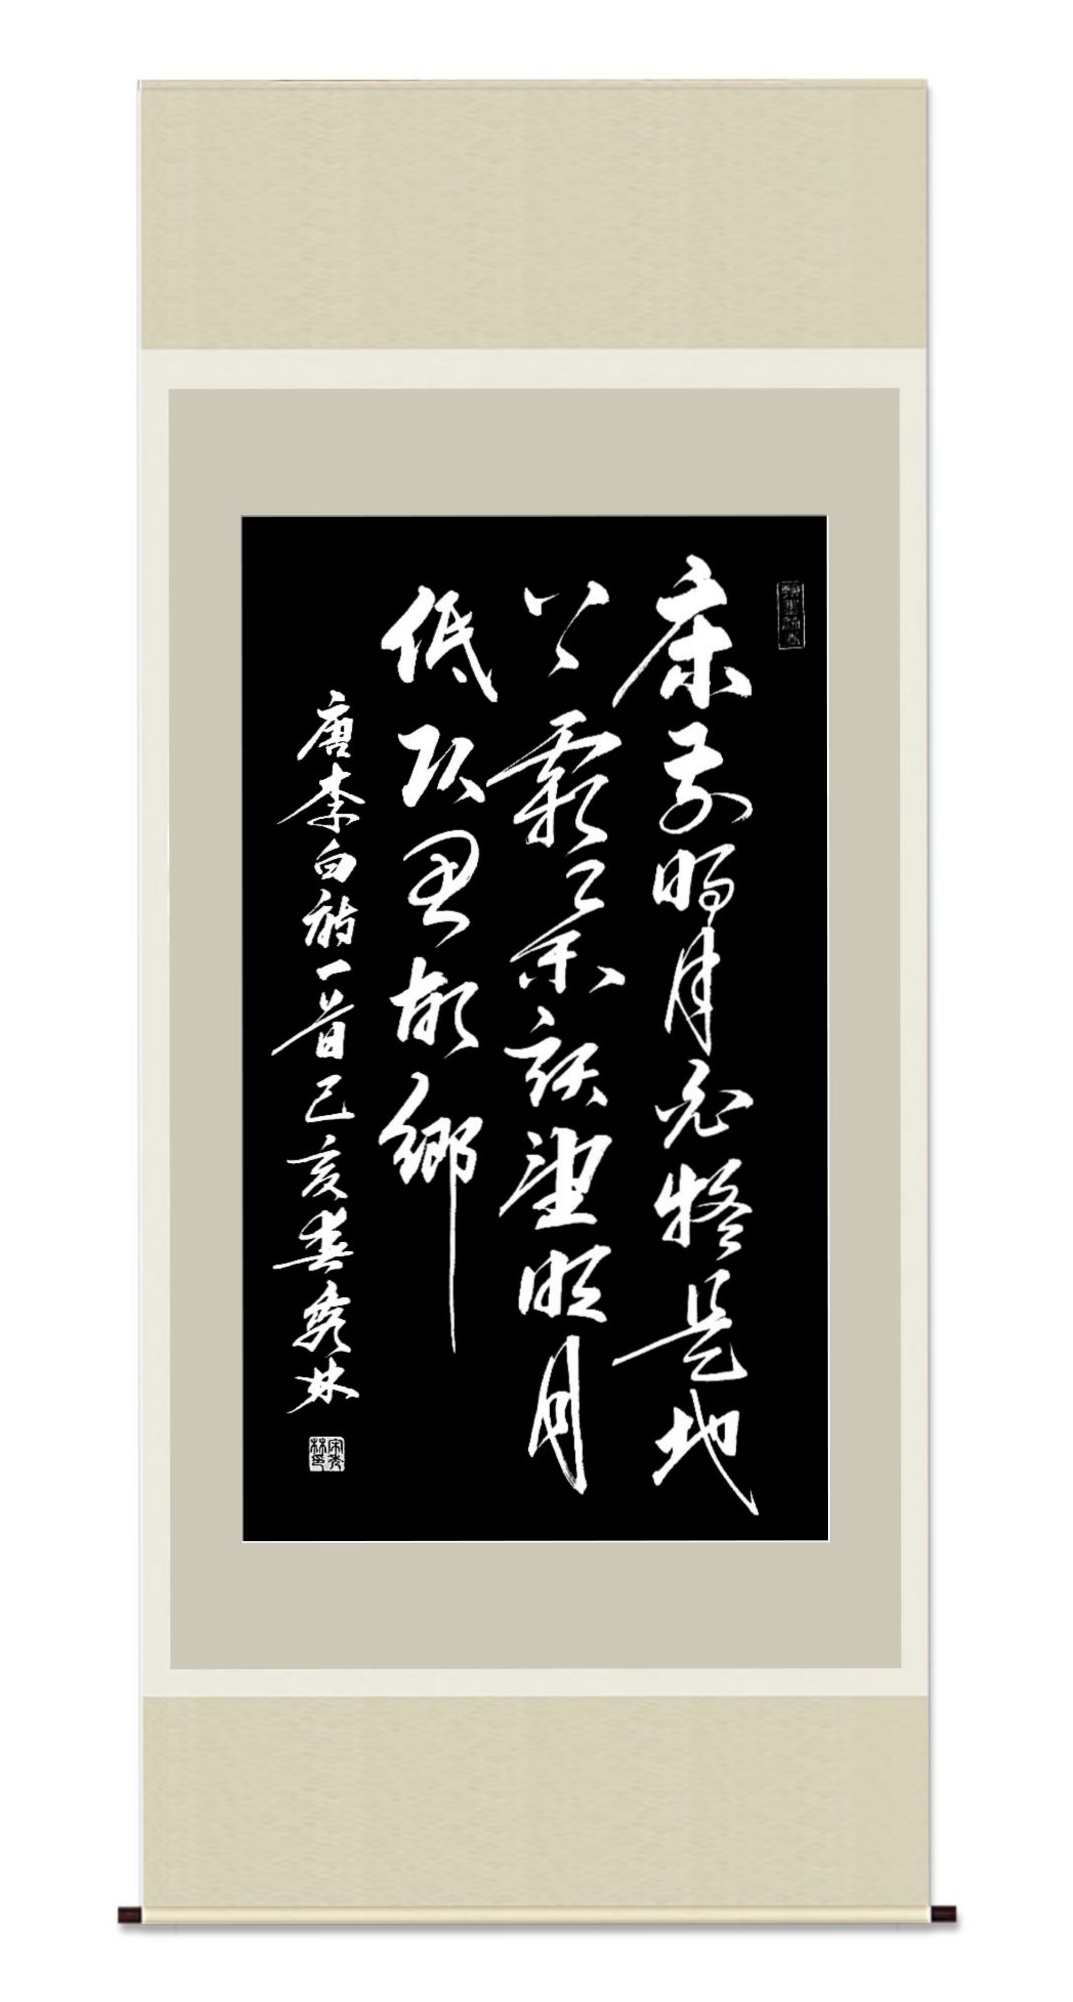 床前明月光疑是地
上霜舉頭望明月
低頭思故鄉
唐李白詩一首己亥春秀林
宋秀林印